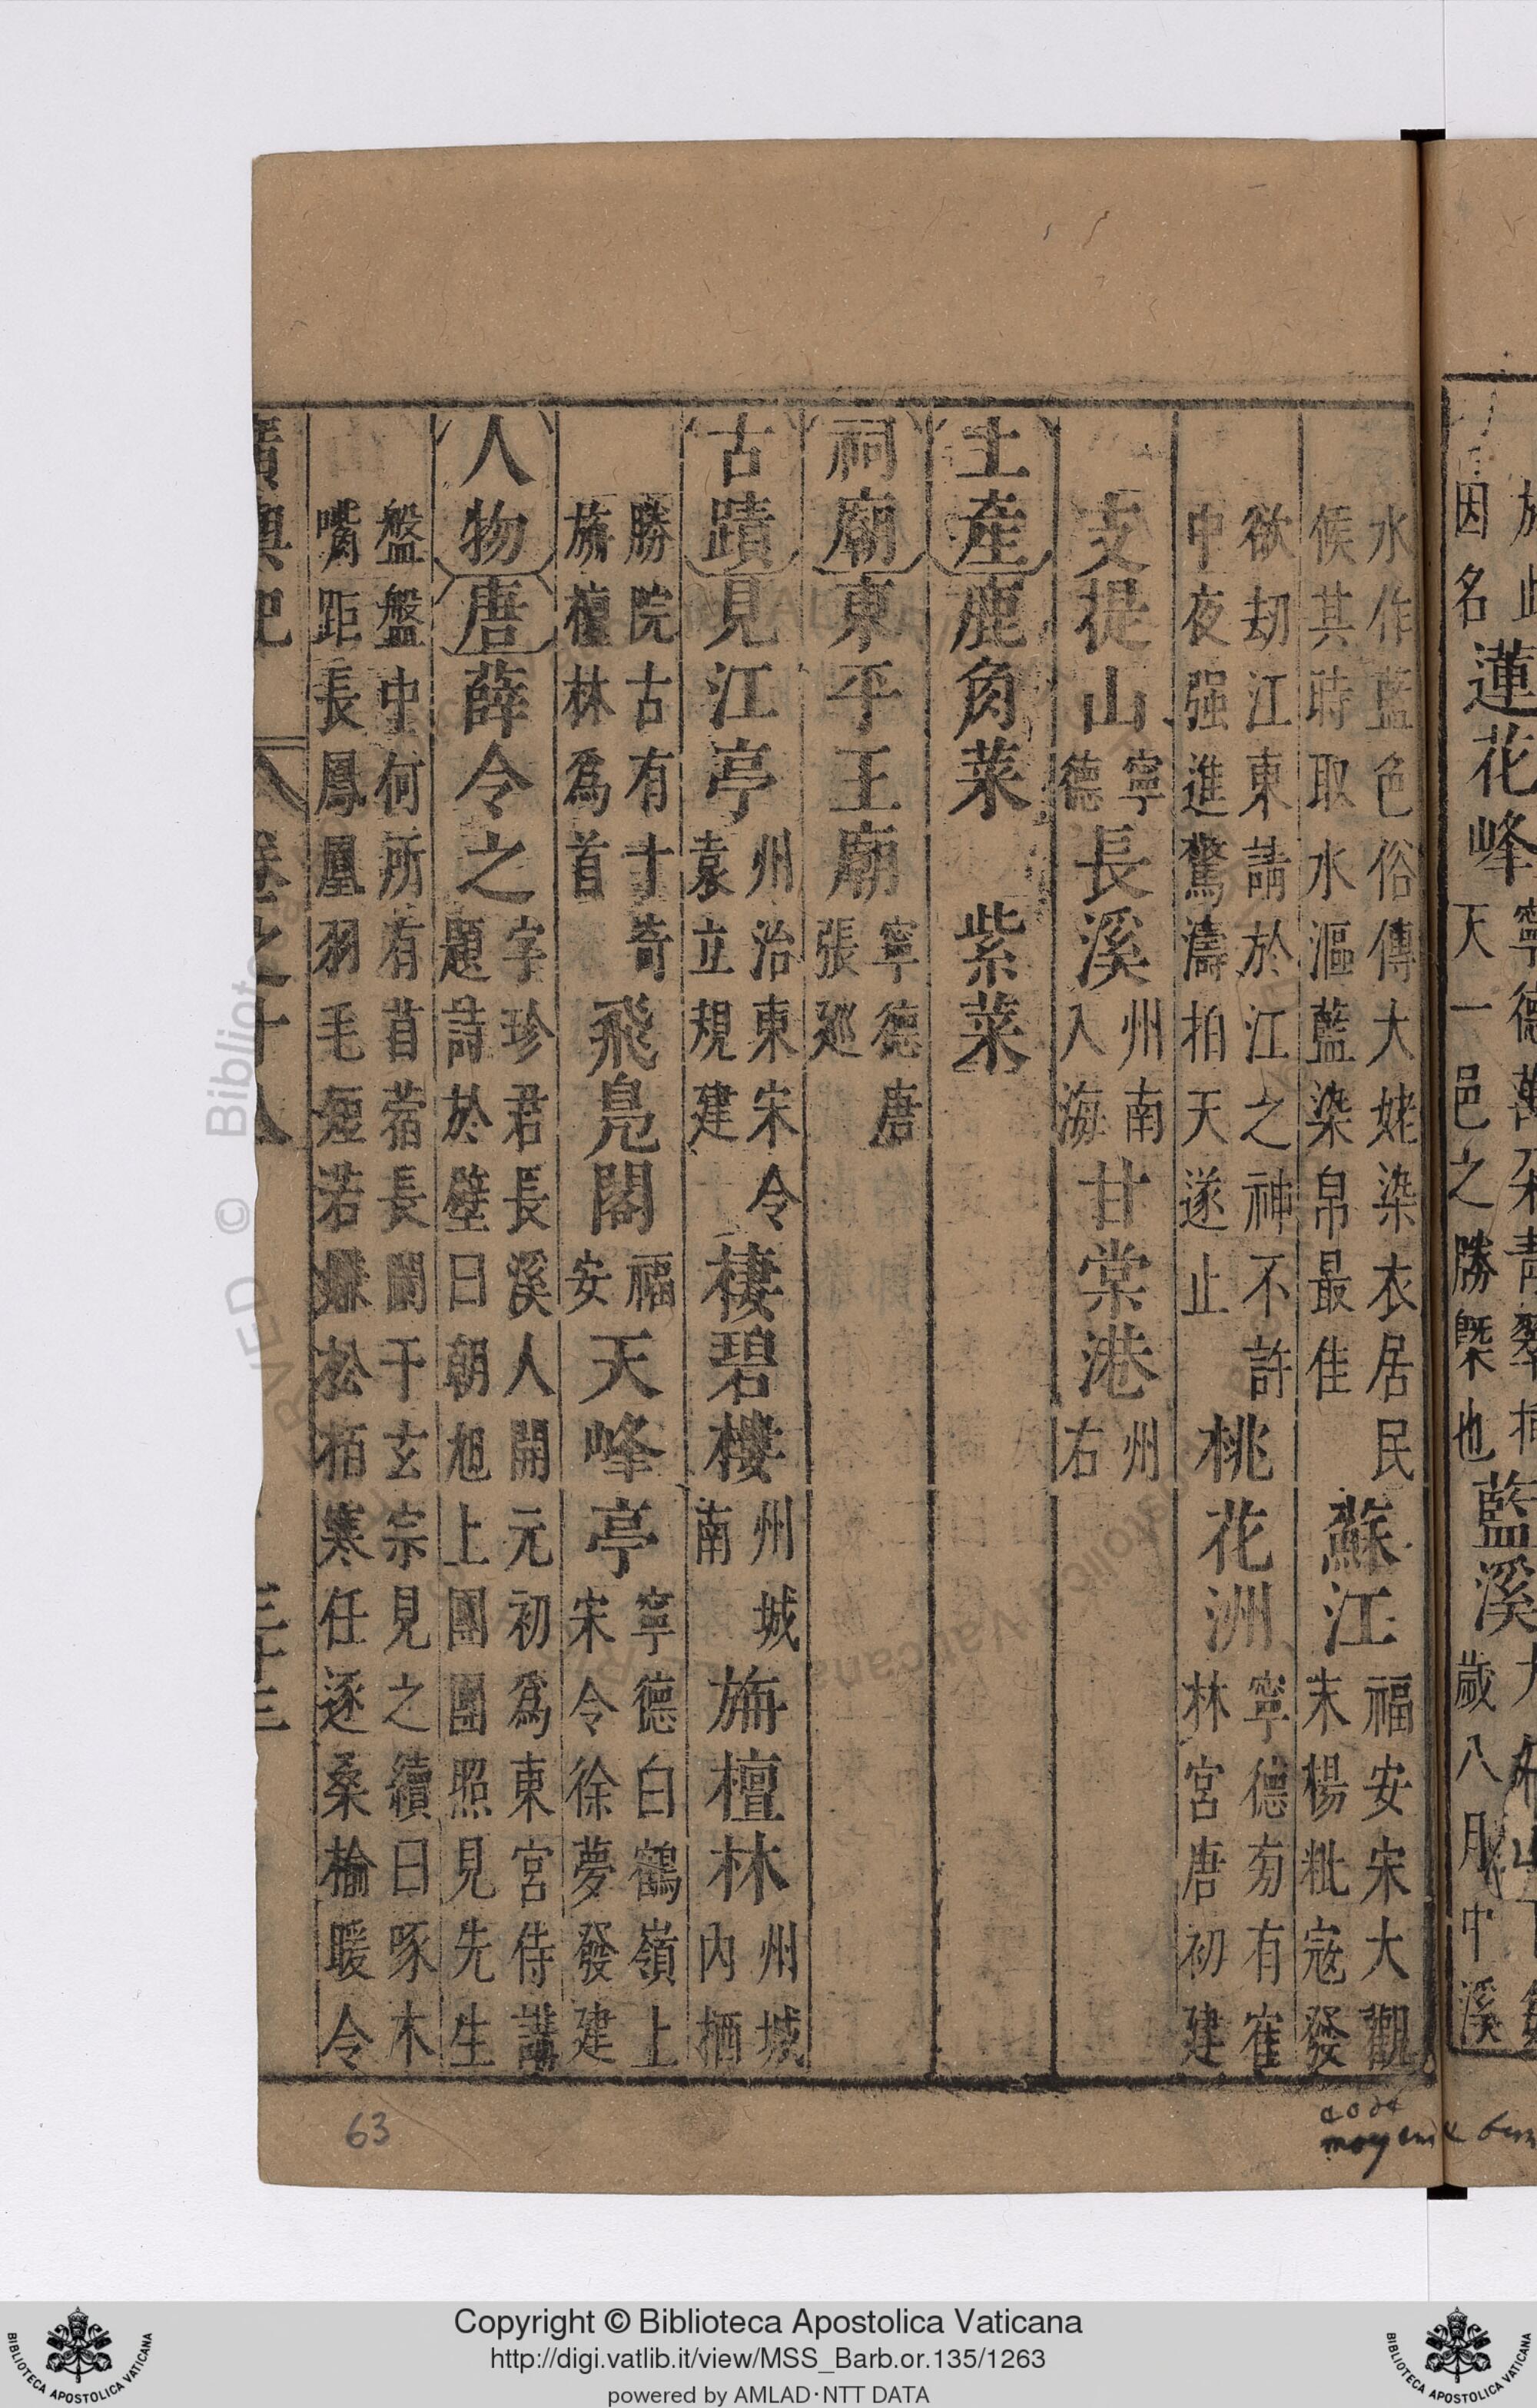 因名蓮花峰天一邑之勝槩也藍溪歲八月中溪
水作藍色俗傳大姥染衣居民候其時取水漚藍染帛最佳蘇江福安宋大觀末楊粃寇發
欲刼江東請於江之神不許中夜强進驚濤拍天遂止桃花洲寧德旁有崔林宮唐初建
支提山寧德長溪州南入海甘棠港州右
土產鹿角菜 紫菜
祠廟東平王廟寧德唐張廵
古蹟見江亭州治東宋令袁立規建棲碧樓州城南旃檀林州城內栖
勝院古有十奇旃檀林爲首飛鳧閣福安天峰亭寧德白鶴嶺上宋令徐夢發建
人物唐薛令之字珍君長溪人開元初爲東宮侍講題詩於壁曰朝旭上團團照見先生
盤盤中何所有苜蓿長闌干玄宗見之續曰啄木嘴距長鳳凰羽毛短若嫌松栢寒任逐桑榆暖令
廣輿記 卷之十八 三十三
63
Copyright © Biblioteca Apostolica Vaticana
http://digi.vatlib.it/view/MSS_Barb.or.135/1263
powered by AMLAD·NTT DATA
BIBLIOTECA APOSTOLICA VATICANA
BIBLIOTECA APOSTOLICA VATICANA